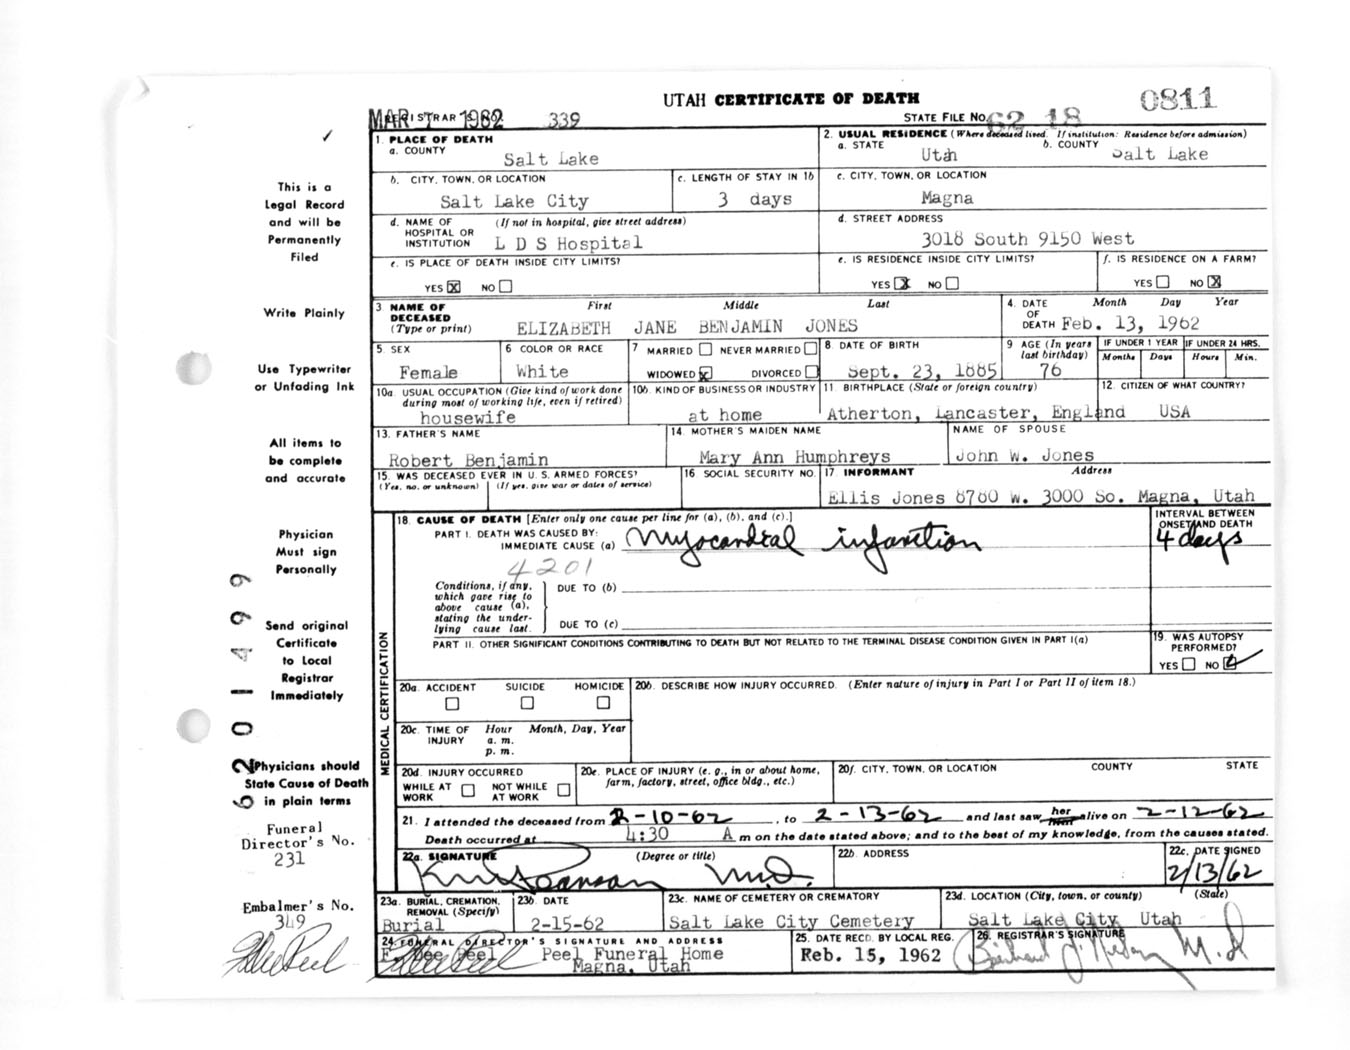 UTAH CERTIFICATE OF DEATH
0811
MAR 1 1962
REGISTRAR 339
STATE FILE NO. 62 18
This is a
Legal Record
and will be
Permanently
Filed
Write Plainly
Use Typewriter
or Unfading Ink
All items to
be complete
and accurate
Physician
Must sign
Personally
Send original
Certificate
to Local
Registrar
Immediately
Physicians should
State Cause of Death
in plain terms
Funeral
Director's No.
231
Embalmer's No.
349
62 01499
1. PLACE OF DEATH
a. COUNTY
Salt Lake
2. USUAL RESIDENCE (Where deceased lived. If institution: Residence before admission)
a. STATE Utah b. COUNTY Salt Lake
b. CITY, TOWN, OR LOCATION
Salt Lake City
c. LENGTH OF STAY IN 1b
3 days
c. CITY, TOWN, OR LOCATION
Magna
d. NAME OF HOSPITAL OR INSTITUTION (If not in hospital, give street address)
L D S Hospital
d. STREET ADDRESS
3018 South 9150 West
e. IS PLACE OF DEATH INSIDE CITY LIMITS?
YES X NO
e. IS RESIDENCE INSIDE CITY LIMITS?
YES X NO
f. IS RESIDENCE ON A FARM?
YES NO X
3 NAME OF DECEASED (Type or print) First Middle Last
ELIZABETH JANE BENJAMIN JONES
4. DATE OF DEATH Month Day Year
Feb. 13, 1962
5. SEX
Female
6 COLOR OR RACE
White
7 MARRIED NEVER MARRIED
WIDOWED X DIVORCED
8. DATE OF BIRTH
Sept. 23, 1885
9 AGE (In years last birthday)
76
IF UNDER 1 YEAR
Months Days
IF UNDER 24 HRS.
Hours Min.
10a. USUAL OCCUPATION (Give kind of work done during most of working life, even if retired)
housewife
10b. KIND OF BUSINESS OR INDUSTRY
at home
11. BIRTHPLACE (State or foreign country)
Atherton, Lancaster, England
12. CITIZEN OF WHAT COUNTRY?
USA
13. FATHER'S NAME
Robert Benjamin
14. MOTHER'S MAIDEN NAME
Mary Ann Humphreys
NAME OF SPOUSE
John W. Jones
15. WAS DECEASED EVER IN U. S. ARMED FORCES?
(Yes, no. or unknown) (If yes, give war or dates of service)
16 SOCIAL SECURITY NO.
17. INFORMANT Address
Ellis Jones 8760 W. 3000 So. Magna, Utah
MEDICAL CERTIFICATION
18. CAUSE OF DEATH [Enter only one cause per line for (a), (b), and (c).]
PART I. DEATH WAS CAUSED BY:
IMMEDIATE CAUSE (a) Myocardial infarction
INTERVAL BETWEEN
ONSET AND DEATH
4 days
4201
Conditions, if any,
which gave rise to
above cause (a),
stating the under-
lying cause last.
DUE TO (b)
DUE TO (c)
PART II. OTHER SIGNIFICANT CONDITIONS CONTRIBUTING TO DEATH BUT NOT RELATED TO THE TERMINAL DISEASE CONDITION GIVEN IN PART I(a)
19. WAS AUTOPSY
PERFORMED?
YES NO
20a. ACCIDENT SUICIDE HOMICIDE
20b. DESCRIBE HOW INJURY OCCURRED. (Enter nature of injury in Part I or Part II of item 18.)
20c. TIME OF INJURY Hour Month, Day, Year
a. m.
p. m.
20d. INJURY OCCURRED
WHILE AT WORK NOT WHILE AT WORK
20e. PLACE OF INJURY (e. g., in or about home, farm, factory, street, office bldg., etc.)
20f. CITY, TOWN, OR LOCATION COUNTY STATE
21. I attended the deceased from 2-10-62, to 2-13-62 and last saw her alive on 2-12-62
Death occurred at 4:30 A m on the date stated above; and to the best of my knowledge, from the causes stated.
22a. SIGNATURE (Degree or title)
M.D.
22b. ADDRESS
22c. DATE SIGNED
2/13/62
23a. BURIAL, CREMATION, REMOVAL (Specify)
Burial
23b. DATE
2-15-62
23c. NAME OF CEMETERY OR CREMATORY
Salt Lake City Cemetery
23d. LOCATION (City, town, or county) (State)
Salt Lake City Utah
24. FUNERAL DIRECTOR'S SIGNATURE AND ADDRESS
Peel Funeral Home
Magna, Utah
25. DATE RECD. BY LOCAL REG.
Reb. 15, 1962
26. REGISTRAR'S SIGNATURE
M.D